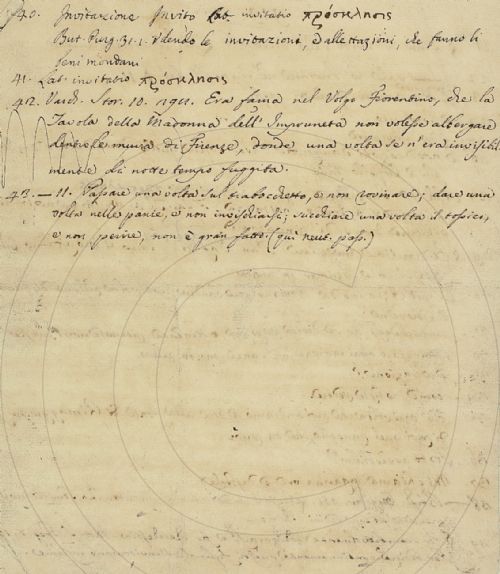 40. Invitazione Invito Lat. invitatio πρόσκλησις
But. Purg. 31. 1. Udendo le invitazioni, e allettazioni, che fanno li
beni mondani
41. Lat. invitatio πρόσκλησις
42. Varch. Stor. 10. Era fama nel Volgo Fiorentino, che la
Tavola della Madonna dell'Impruneta non volesse albergare
dentro le mura di Firenze, donde una volta se n'era invisibil
mente di notte tempo fuggita.
43. — 11. Passare una volta sul trabocchetto, e non rovinare; dare una
volta nelle panie, e non invischiarsi; succhiare una volta il tossico,
e non perire, non è gran fatto. (qui neut. pass.)